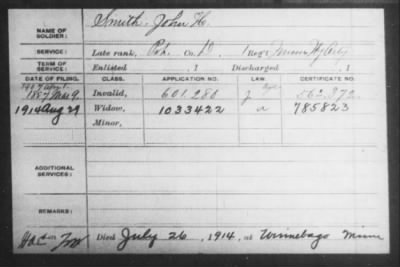 NAME OF SOLDIER: Smith, John H.
SERVICE: Late rank, Pvt. Co. D, 1 Reg't Minn Hy Arty
TERM OF SERVICE: Enlisted , 1 Discharged , 1
DATE OF FILING. CLASS. APPLICATION NO. LAW. CERTIFICATE NO.
1887 Mar 9. Invalid, 601,280 562,372
1914 Aug 29 Widow, 1033422 785823
Minor,
ADDITIONAL SERVICES:
REMARKS:
Died July 26, 1914, at Winnebago Minn